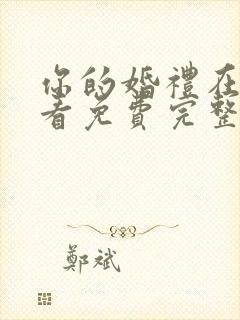 你的婚禮在
看免費完整
鄭斌